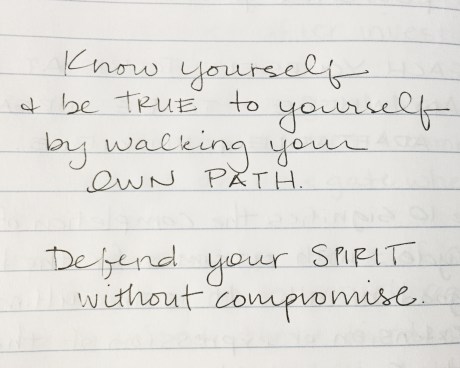 Know yourself
& be TRUE to yourself
by walking your
OWN PATH.
Defend your SPIRIT
without compromise.